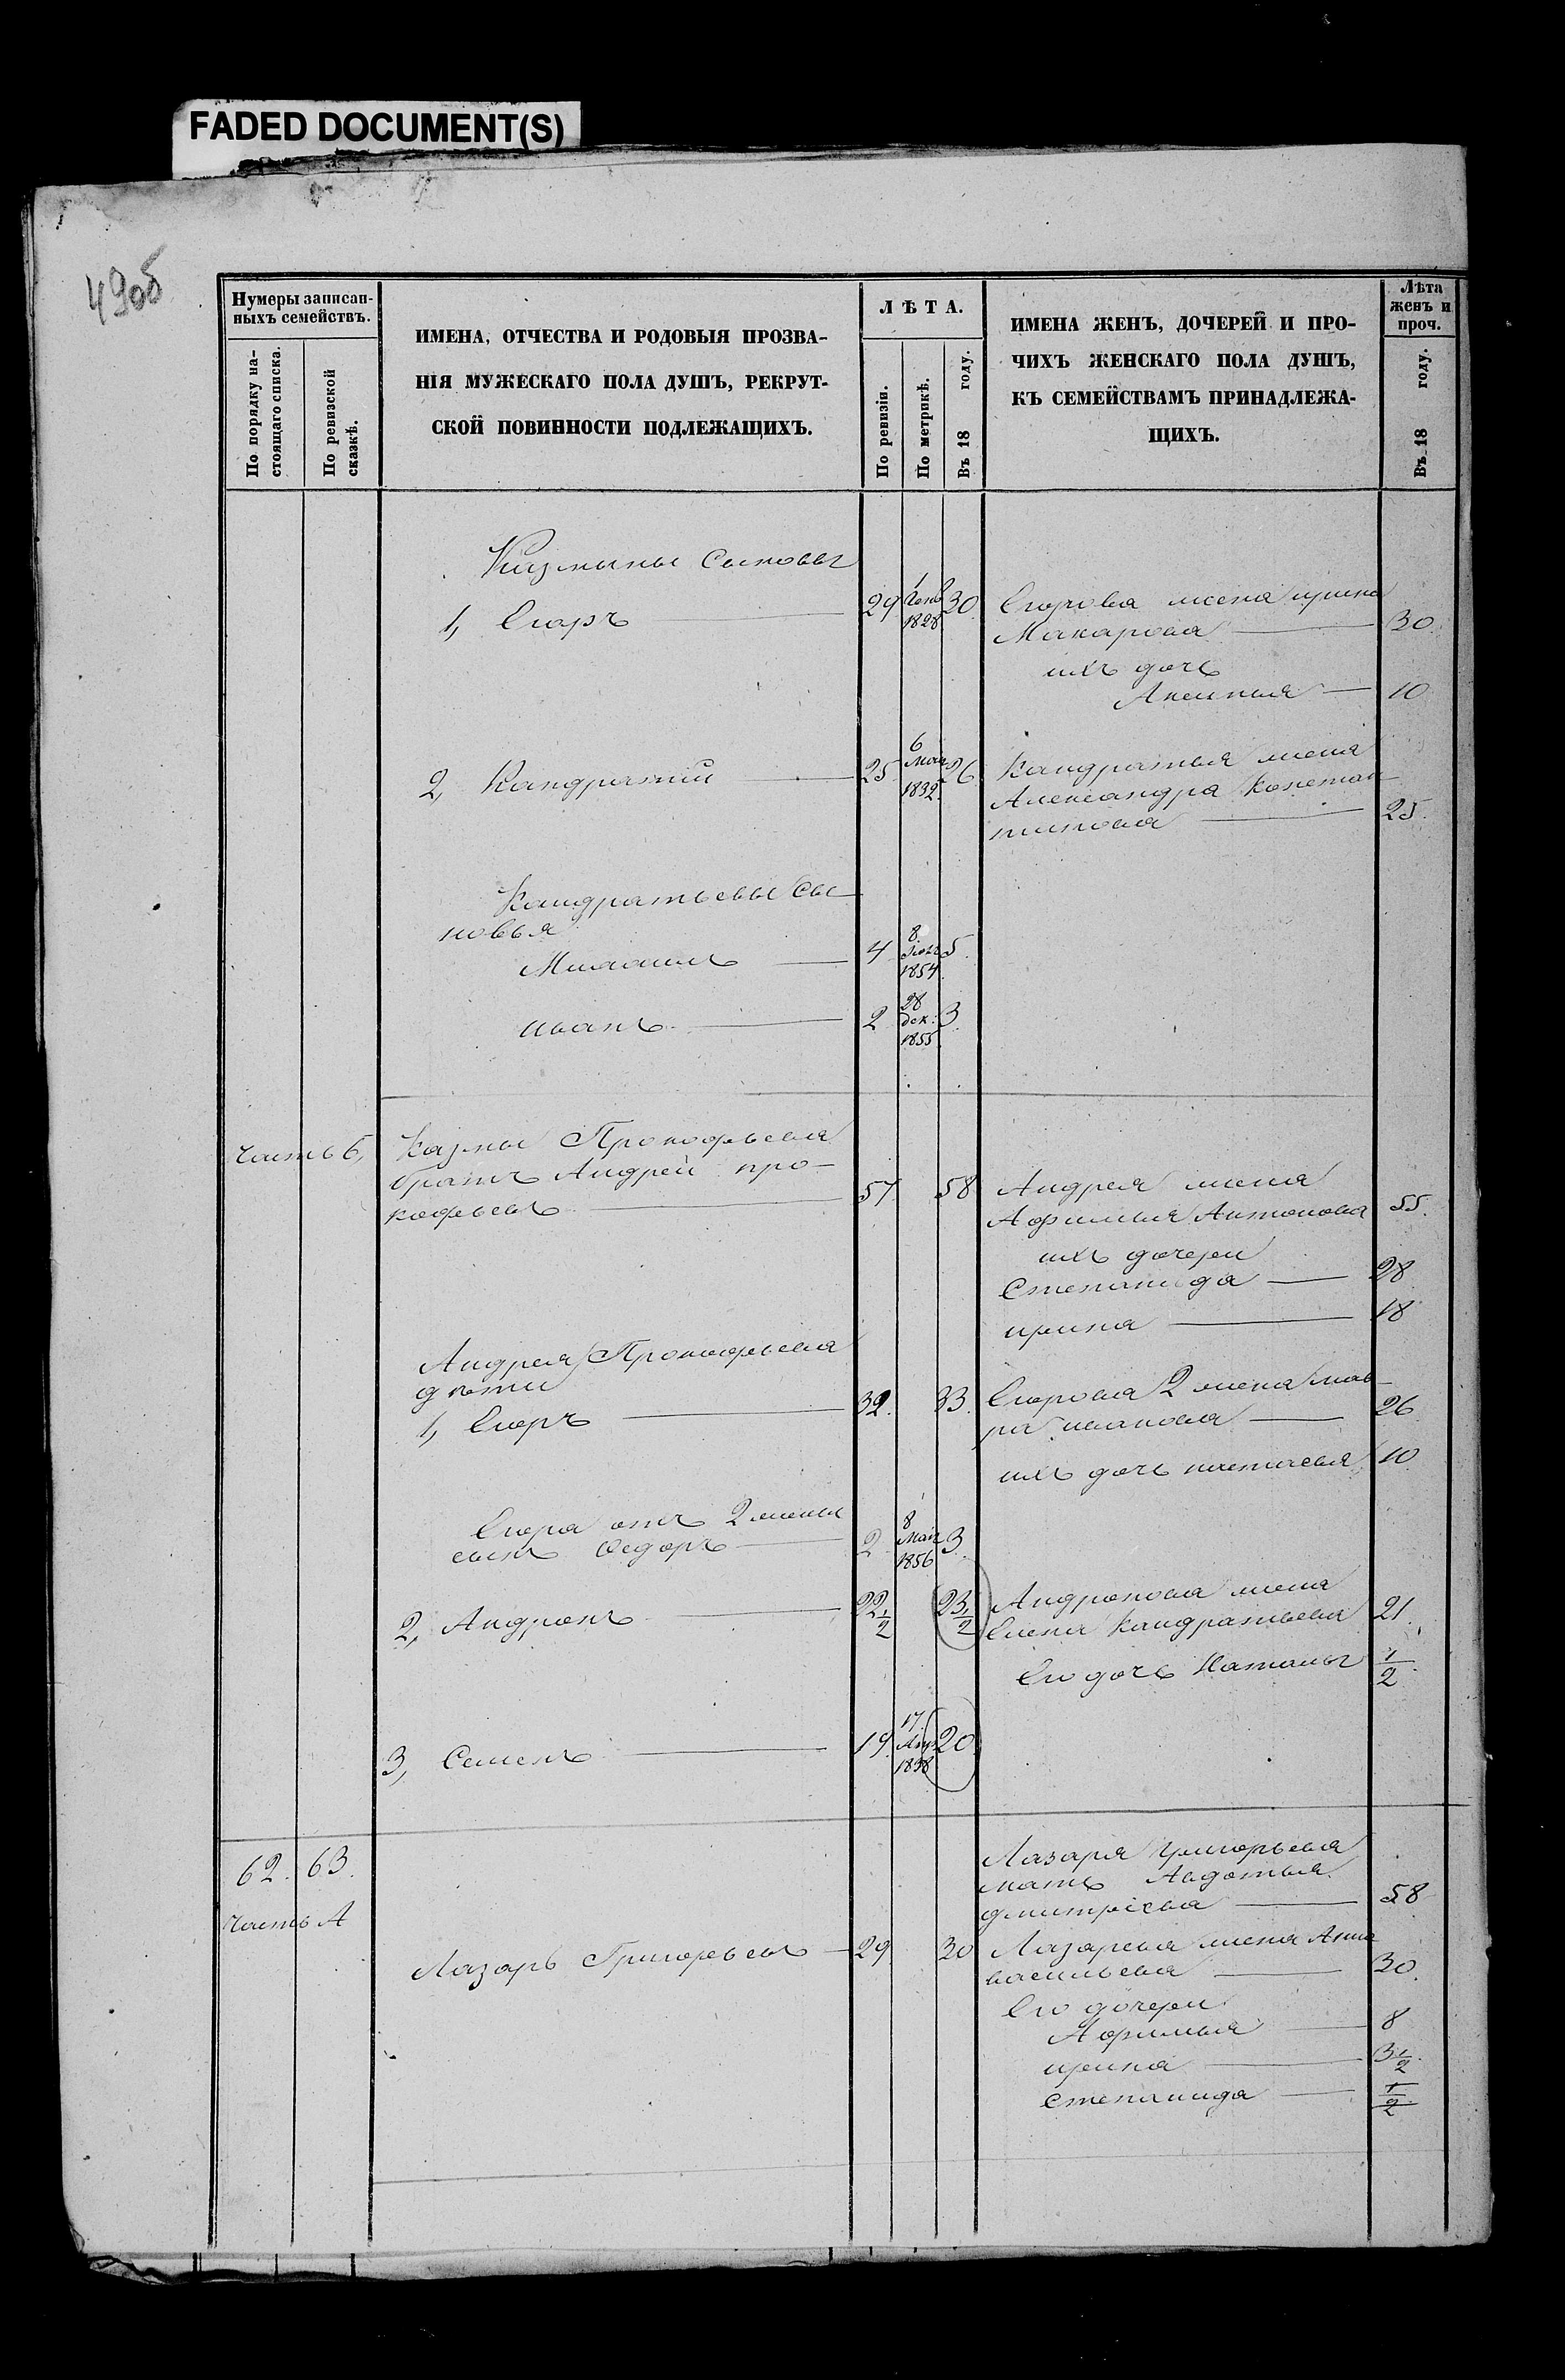 FADED DOCUMENT(S)
49об
Нумеры записан-
ныхъ семействъ.
По порядку на-
стоящаго списка.
По ревизской
сказкѣ.
ИМЕНА, ОТЧЕСТВА И РОДОВЫЯ ПРОЗВА-
НІЯ МУЖЕСКАГО ПОЛА ДУШЪ, РЕКРУТ-
СКОЙ ПОВИННОСТИ ПОДЛЕЖАЩИХЪ.
ЛѢТА.
По ревизіи.
По метрикѣ.
Въ 18 году.
ИМЕНА ЖЕНЪ, ДОЧЕРЕЙ И ПРО-
ЧИХЪ ЖЕНСКАГО ПОЛА ДУШЪ,
КЪ СЕМЕЙСТВАМЪ ПРИНАДЛЕЖА-
ЩИХЪ.
Лѣта
женъ и
проч.
Въ 18 году.
Казмины Сыновья
1, Егоръ 29 1 1828 30
Егорова жена ирина
Макарова 30
ихъ дочь
Аксинья 10
2, Кандратий 25 6 Мая 1832 26
Кандратья жена
Александра Констан-
тинова 25
Кандратьевы Сы-
новья
Михаилъ 4 8 1854 5
иванъ 2 28 дек: 1855 3
часть б, Казмы Прокофьева
братъ Андрей про-
кофьевъ 57 58
Андрея жена
Афимья Антонова 55
ихъ дочери
Степанида 28
ирина 18
Андрея Прокофьева
дѣти
1, Егоръ 32 33
Егорова 2 жена мав-
ра иванова 26
ихъ дочь настасья 10
Егора отъ 2 жены
сынъ Федоръ 2 8 Мая 1856 3
2, Андронъ 22 1/2 23 1/2
Андронова жена
Елена Кандратьева 21
Его дочь Наталья 1/2
3, Семенъ 19 17 Апр 1838 20
62. 63.
часть А
Лазаря Григорьева
мать Авдотья
дмитріева 58
Лазарь Григорьевъ 29 30
Лазарева жена Анна
васильева 30
Его дочери
Афимья 8
ирина 3 1/2
степанида 1/2